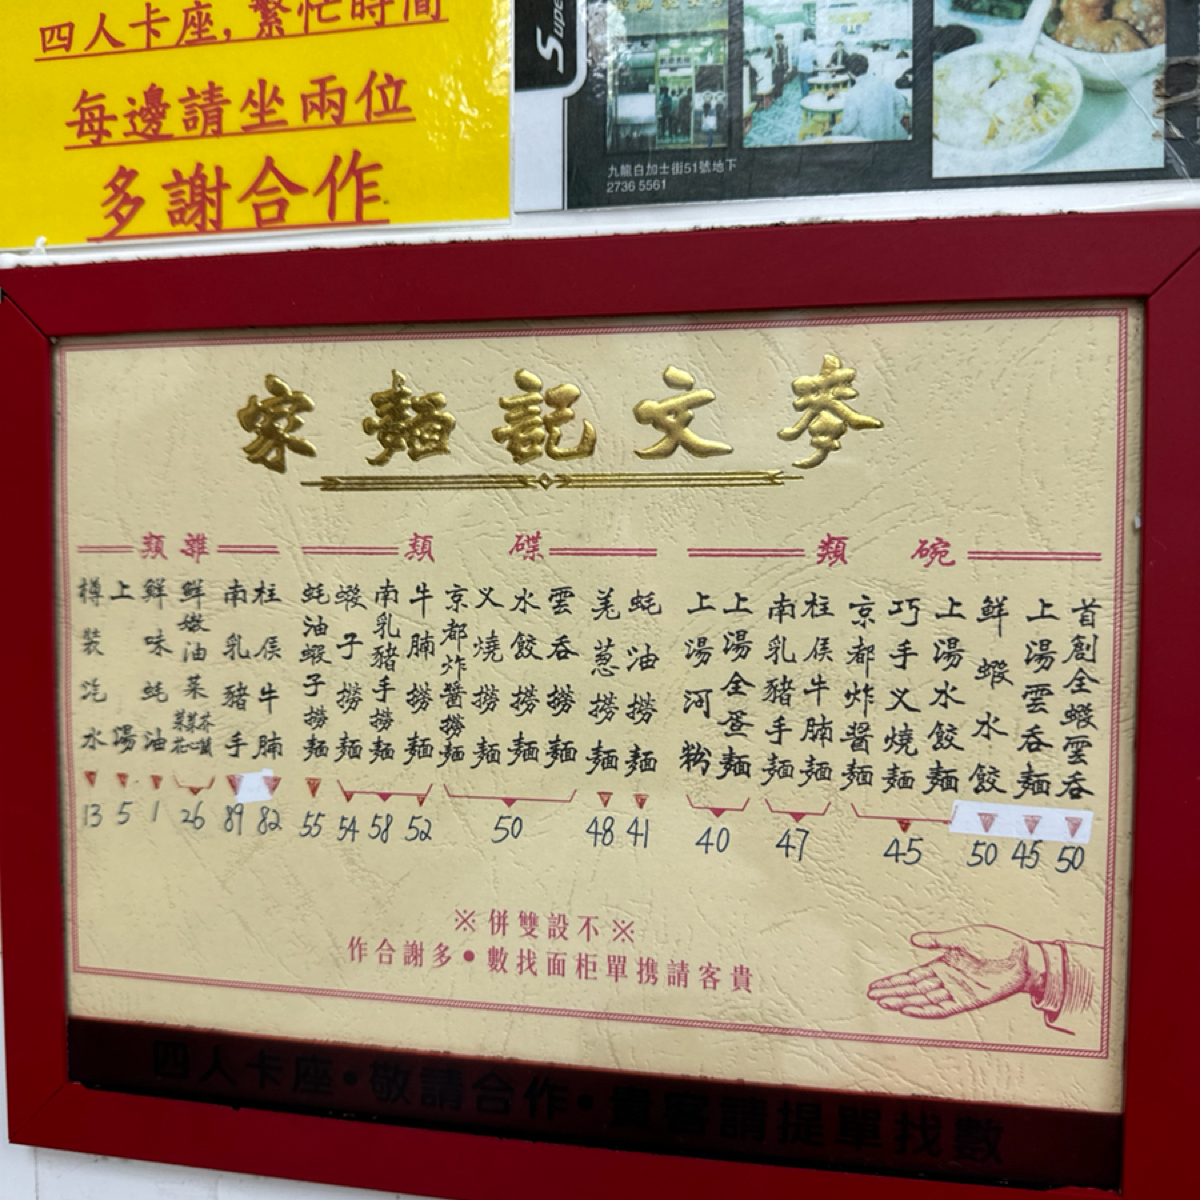 四人卡座，繁忙時間
每邊請坐兩位
多謝合作
九龍白加士街51號地下
2736 5561
麥文記麵家
碗類
首創全蝦雲吞 50
上湯雲吞麵 45
鮮蝦水餃 50
上湯水餃麵
巧手义燒麵
京都炸醬麵
45
柱侯牛腩麵
南乳豬手麵
47
上湯全蛋麵
上湯河粉
40
碟類
蚝油撈麵 41
羗葱撈麵 48
雲吞撈麵
水餃撈麵
义燒撈麵
京都炸醬撈麵
50
牛腩撈麵 52
南乳豬手撈麵 58
蝦子撈麵 54
蚝油蝦子撈麵 55
雜類
柱侯牛腩 82
南乳豬手 89
鮮嫩油菜 26
鮮味蚝油 1
上湯 5
樽裝汽水 13
※不設雙併※
貴客請携單柜面找數•多謝合作
四人卡座•敬請合作•貴客請提單找數